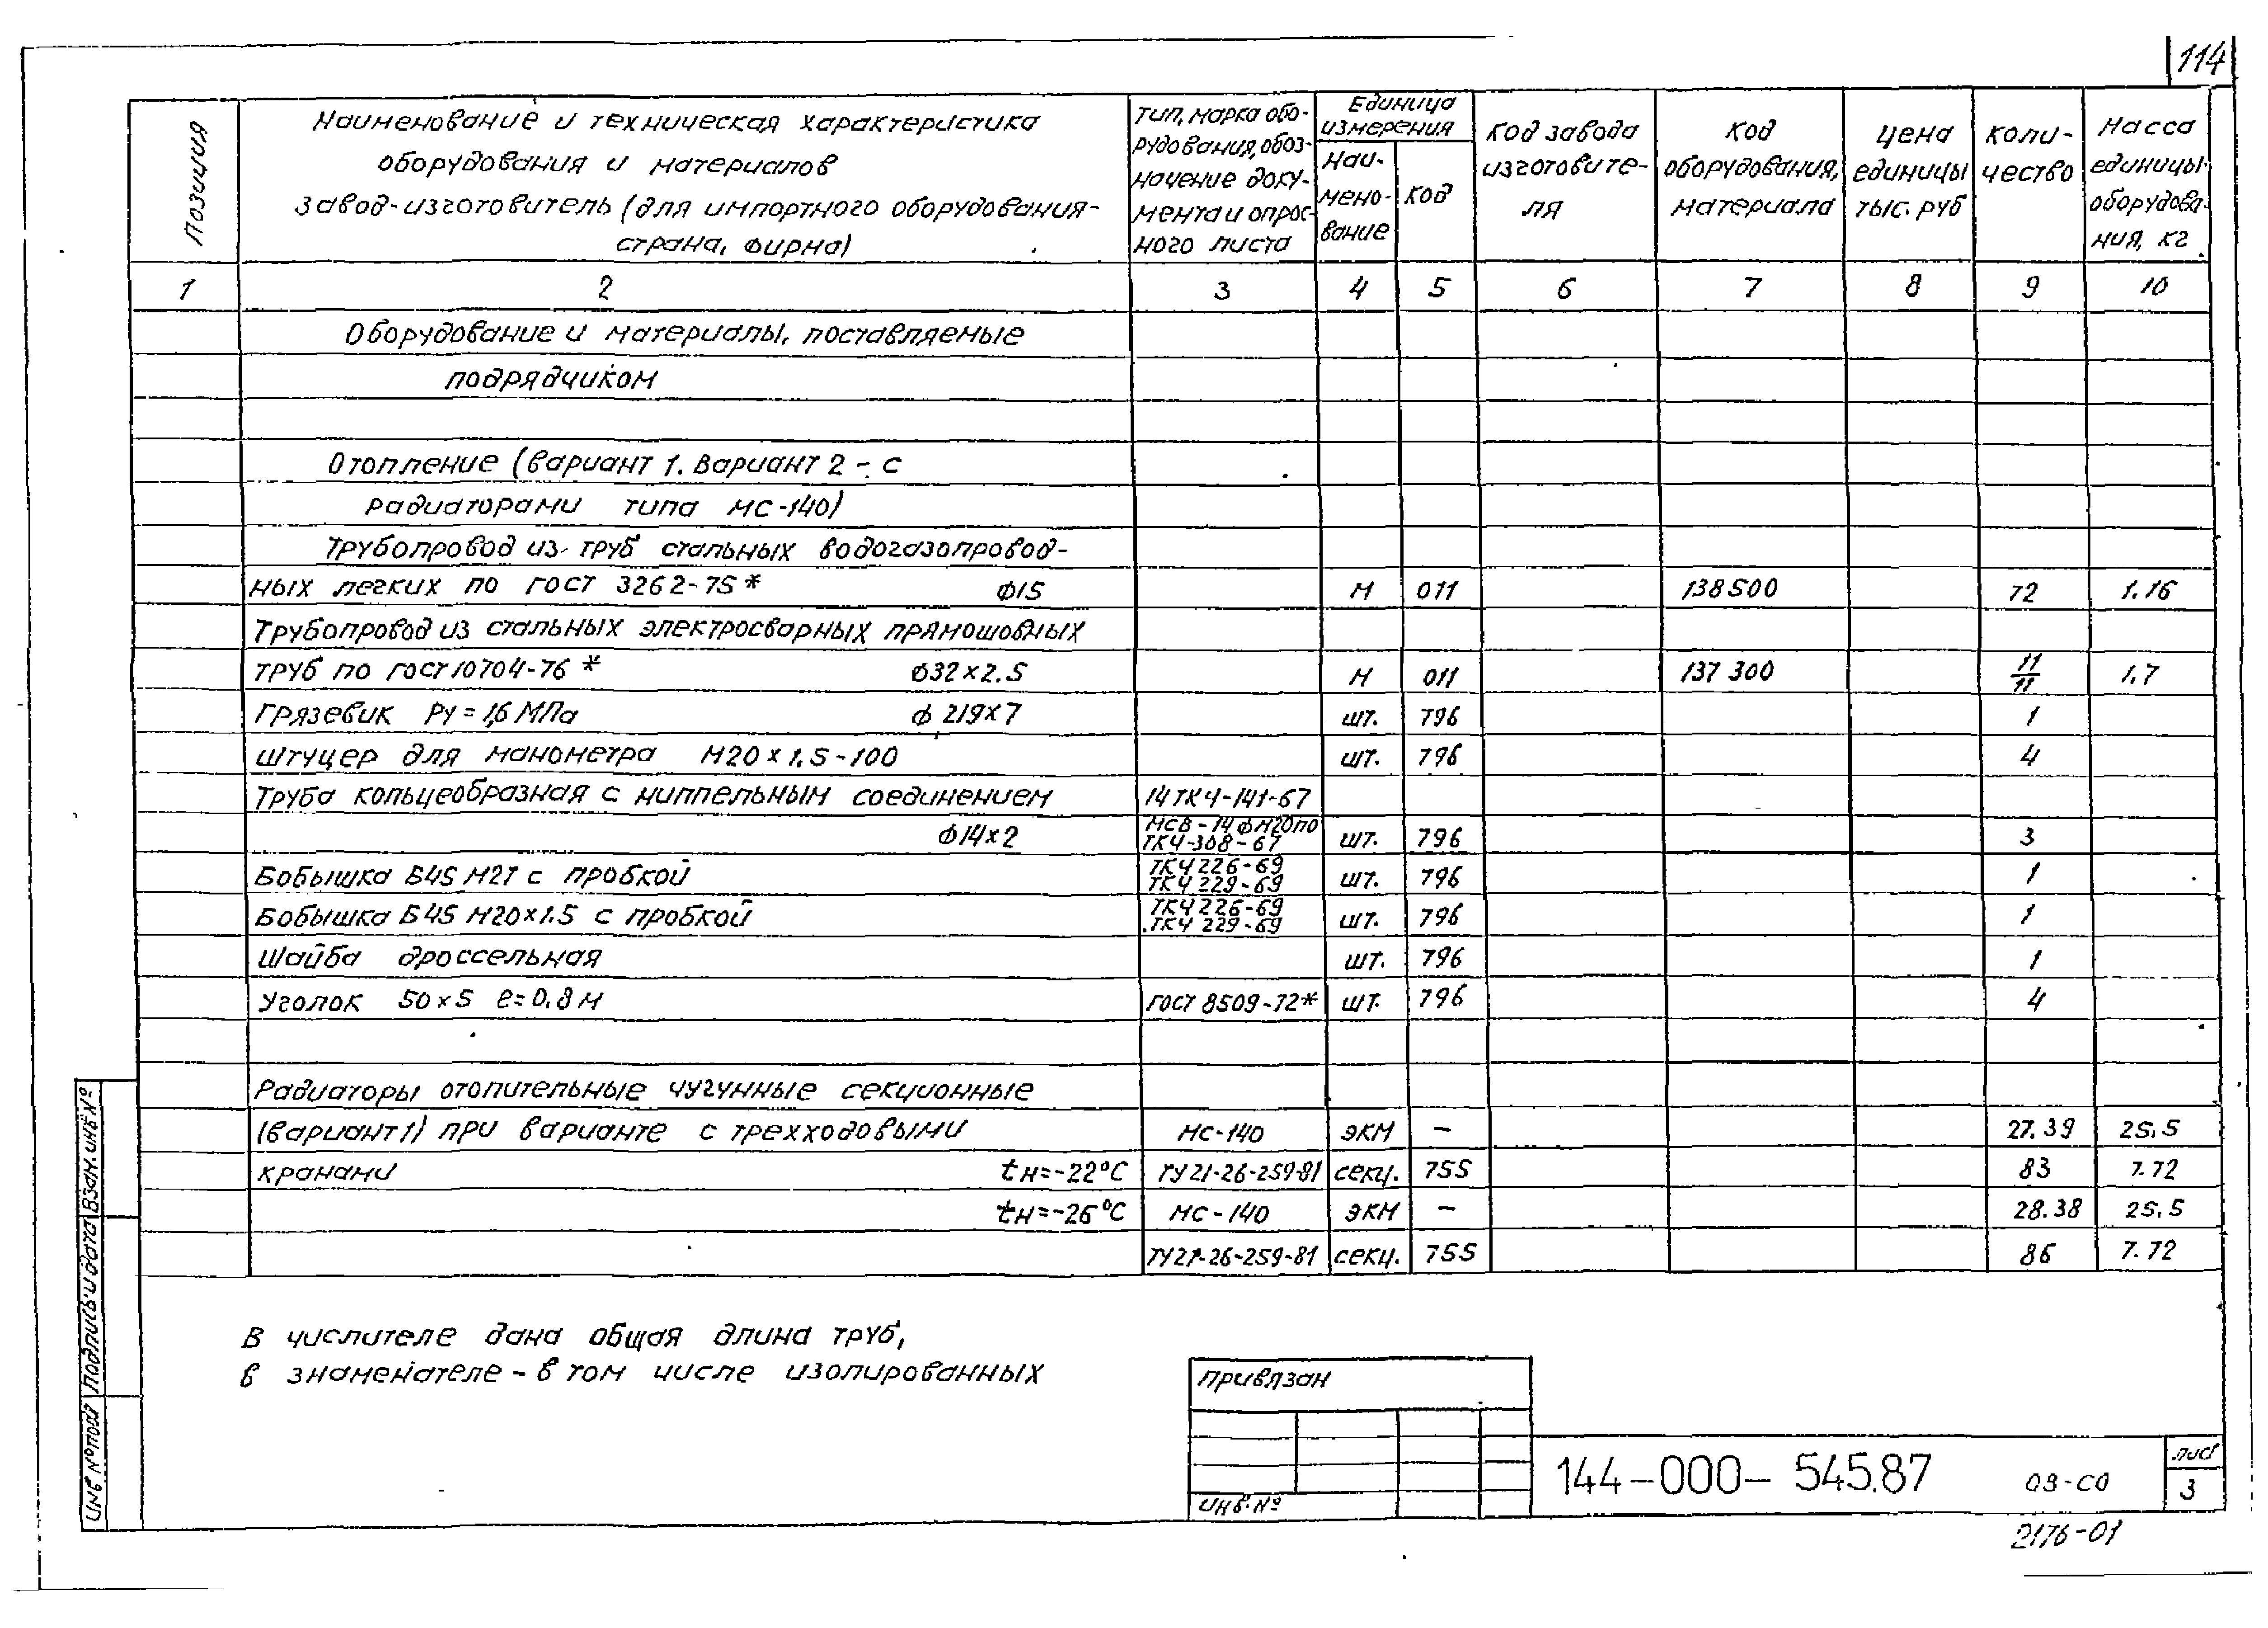 114
Позиция
Наименование и техническая характеристика
оборудования и материалов
завод-изготовитель (для импортного оборудования-
страна, фирма)
Тип, марка обо-
рудования, обоз-
начение доку-
мента и опрос-
ного листа
Единица
измерения
Наи-
мено-
вание
код
Код завода
изготовите-
ля
Код
оборудования,
материала
Цена
единицы
тыс. руб
Коли-
чество
Масса
единицы
оборудова-
ния, кг
1 2 3 4 5 6 7 8 9 10
Оборудование и материалы, поставляемые
подрядчиком
Отопление (вариант 1. Вариант 2 - с
радиаторами типа МС-140)
Трубопровод из труб стальных водогазопровод-
ных легких по ГОСТ 3262-75* ф15 м 011 138500 72 1.16
Трубопровод из стальных электросварных прямошовных
труб по ГОСТ 10704-76* ф32×2.5 м 011 137 300 11/11 1.7
Грязевик Ру = 1,6 МПа ф 219×7 шт. 796 1
Штуцер для манометра М20×1.5-100 шт. 796 4
Труба кольцеобразная с ниппельным соединением 14 ТК4-141-67
ф14×2 МСВ-14фМ20 по ТК4-308-67 шт. 796 3
Бобышка Б45 М27 с пробкой ТК4 226-69 ТК4 229-69 шт. 796 1
Бобышка Б45 М20×1.5 с пробкой ТК4 226-69 ТК4 229-69 шт. 796 1
Шайба дроссельная шт. 796 1
Уголок 50×5 ℓ=0.8 м ГОСТ 8509-72* шт. 796 4
Радиаторы отопительные чугунные секционные
(вариант 1) при варианте с трехходовыми МС-140 ЭКМ - 27.39 25.5
кранами tн=-22°С ТУ 21-26-259-81 секц. 755 83 7.72
tн=-26°С МС-140 ЭКМ - 28.38 25.5
ТУ21-26-259-81 секц. 755 86 7.72
В числителе дана общая длина труб,
в знаменателе - в том числе изолированных
Привязан
Инв. №
144-000-545.87 ОВ-СО
Лист
3
2176-01
Взам. инв №
Подпись и дата
Инв № подл